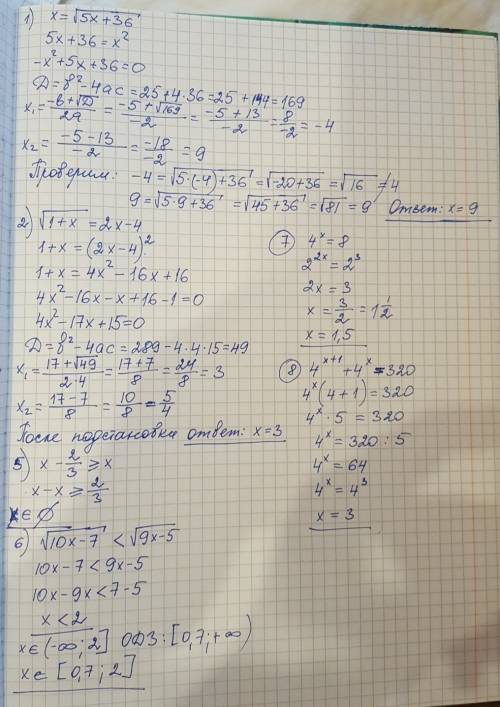 1) x = √5x+36
5x+36 = x²
-x²+5x+36=0
D = b²-4ac = 25+4·36=25+144=169
x₁ = -b+√D / 2a = -5+√169 / -2 = -5+13 / -2 = 8 / -2 = -4
x₂ = -5-13 / -2 = -18 / -2 = 9
Проверим: -4 = √5·(-4)+36 = √-20+36 = √16 ≠ 4
9 = √5·9+36 = √45+36 = √81 = 9 Ответ: x=9
2) √1+x = 2x-4
1+x = (2x-4)²
1+x = 4x²-16x+16
4x²-16x-x+16-1=0
4x²-17x+15=0
D = b²-4ac = 289-4·4·15=49
x₁ = 17+√49 / 2·4 = 17+7 / 8 = 24 / 8 = 3
x₂ = 17-7 / 8 = 10 / 8 = 5 / 4
После подстановки ответ: x=3
5) x - 2/3 ≥ x
x-x ≥ 2/3
x ∈ ∅
6) √10x-7 < √9x-5
10x-7 < 9x-5
10x-9x < 7-5
x < 2
x ∈ (-∞; 2] ОДЗ: [0,7; +∞)
x ∈ [0,7; 2]
7 4ˣ = 8
2²ˣ = 2³
2x = 3
x = 3/2 = 1 1/2
x = 1,5
8 4ˣ⁺¹ + 4ˣ = 320
4ˣ(4+1) = 320
4ˣ · 5 = 320
4ˣ = 320 : 5
4ˣ = 64
4ˣ = 4³
x = 3